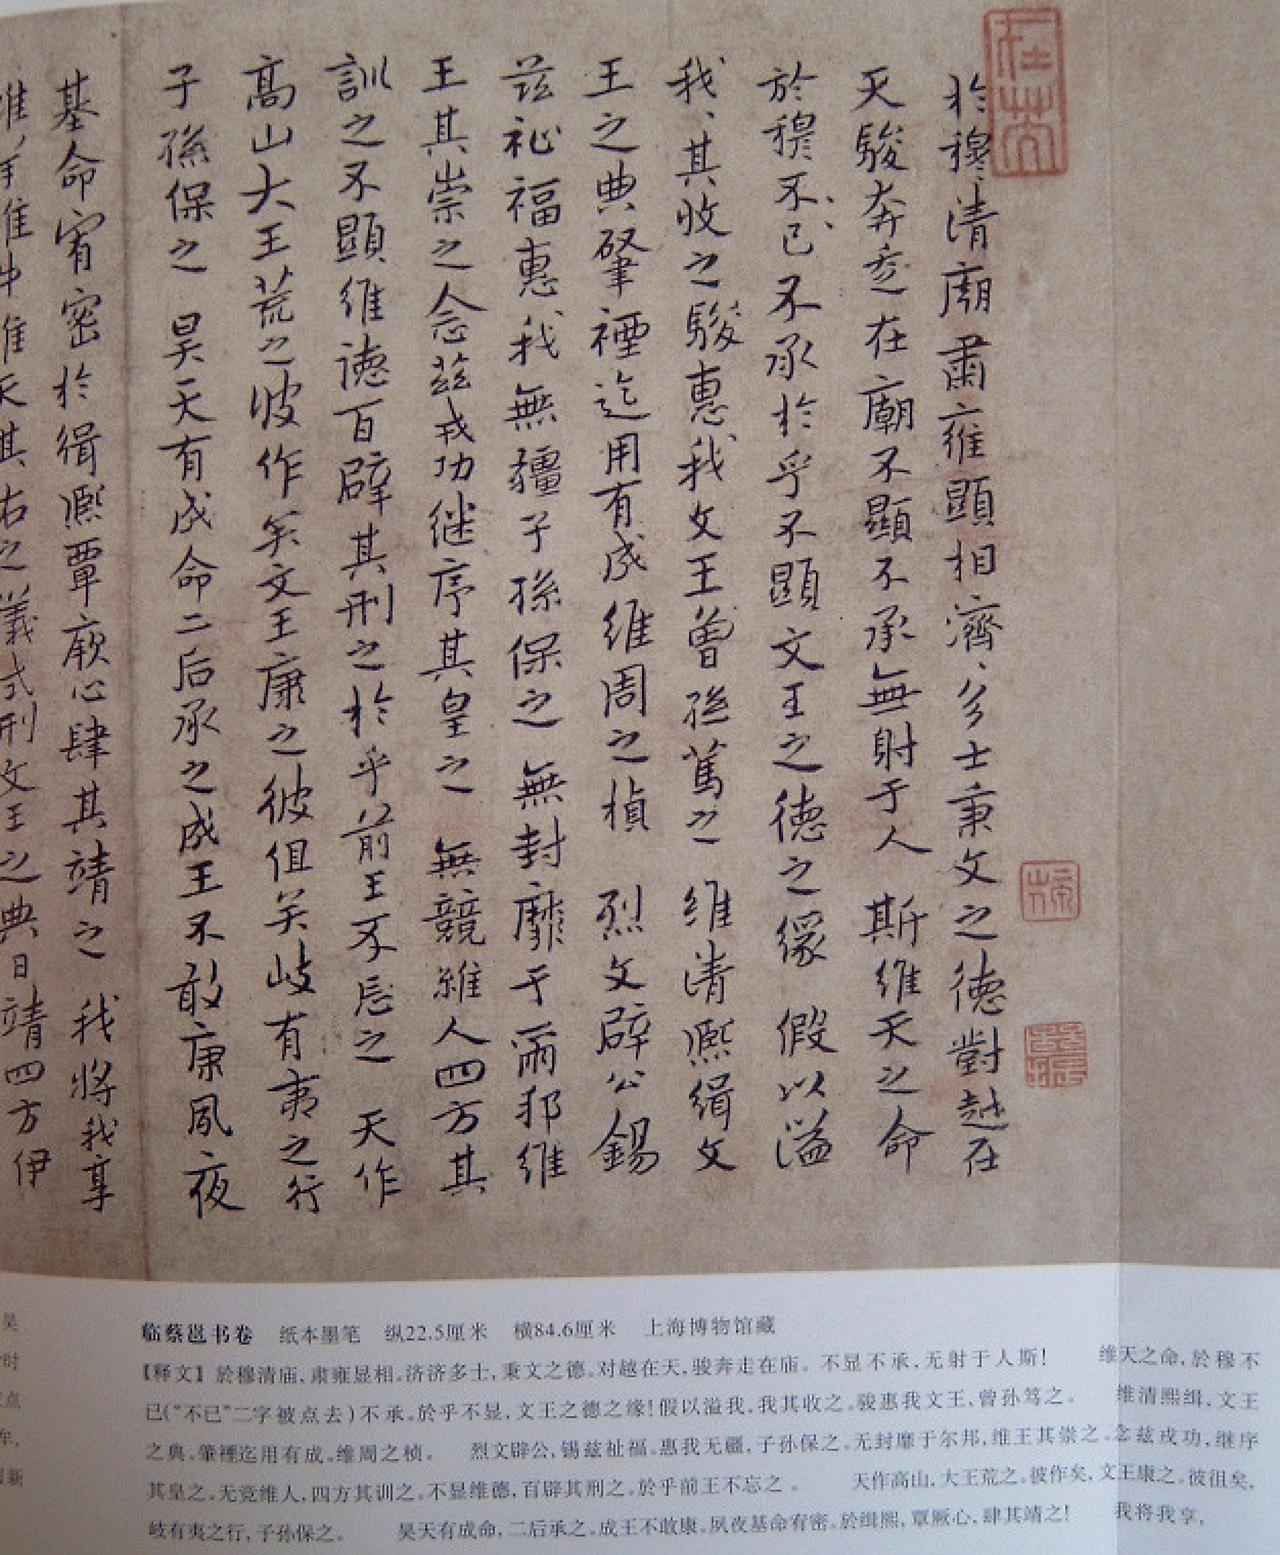 於穆清廟肅雍顯相濟、多士秉文之德對越在
天駿奔走在廟不顯不承無射于人斯維天之命
於穆不已不承於乎不顯文王之德之緣假以溢
我、其收之駿惠我文王曾孫篤之維清熙緝文
王之典肇禋迄用有成維周之楨烈文辟公錫
茲祉福惠我無疆子孫保之無封靡于爾邦維
王其崇之念茲戎功继序其皇之無競維人四方其
訓之不顯維德百辟其刑之於乎前王不忘之天作
高山大王荒之彼作矣文王康之彼徂矣岐有夷之行
子孫保之昊天有成命二后承之成王不敢康夙夜
基命宥密於緝熙覃厥心肆其靖之我將我享
維羊維牛維天其右之義式刑文王之典日靖四方伊
临蔡邕书卷 纸本墨笔 纵22.5厘米 横84.6厘米 上海博物馆藏
【释文】於穆清庙,肃雍显相。济济多士,秉文之德。对越在天,骏奔走在庙。不显不承,无射于人斯! 维天之命,於穆不
已(“不已”二字被点去)不承。於乎不显,文王之德之缘!假以溢我,我其收之。骏惠我文王,曾孙笃之。 维清熙缉,文王
之典。肇禋迄用有成。维周之桢。 烈文辟公,锡兹祉福。惠我无疆,子孙保之。无封靡于尔邦,维王其崇之。念兹戎功,继序
其皇之。无竞维人,四方其训之。不显维德,百辟其刑之。於乎前王不忘之。 天作高山,大王荒之。彼作矣,文王康之。彼徂矣,
岐有夷之行,子孙保之。 昊天有成命,二后承之。成王不敢康,夙夜基命宥密。於缉熙,覃厥心,肆其靖之! 我将我享,
昊
时
点
牟,
新